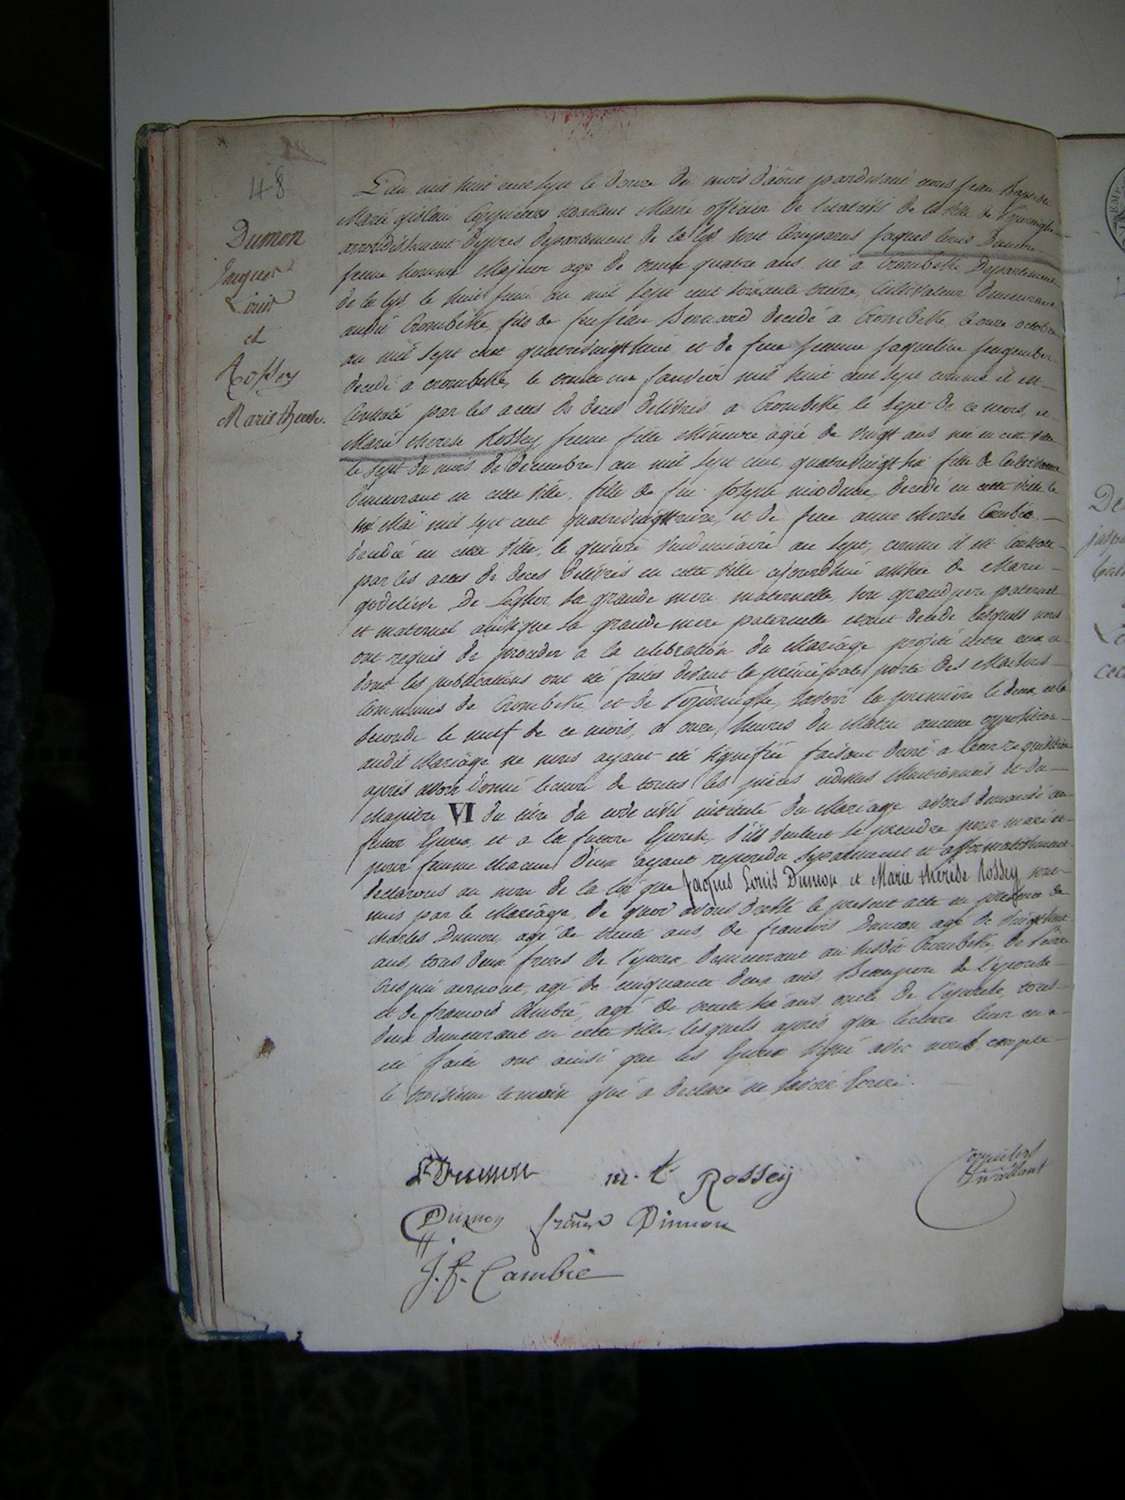 48
Dumon
Jacques
Louis
et
Rossey
Marie therese.
L'an mil huit cent sept le douze du mois d'août pardevant nous Jean Baptiste
Marie Gislain Maire officier de l'état civil de la ville de Poperinghe
arrondissement d'ypres Departement de la Lys sont comparus Jaques Louis Dumon
jeune homme Majeur agé de trente quatre ans né à Crombeke Departement
de la Lys le huit juin an mil sept cent soixante treize, Cultivateur demeurant
audit Crombeke fils de feu Bernard decedé à Crombeke le onze octobre
an mil sept cent quatrevingt huit et de feue Jaqueline
decedé a crombeke, le janvier mil huit cent sept comme il est
constaté par les actes de deces delivrés a Crombeke le sept de ce mois, et
Marie therese Rossey jeune fille Mineure agée de vingt ans née en cette ville
le sept du mois de decembre an mil sept cent quatrevingt six fille de
demeurant en cette ville, fille de feu Joseph decedé en cette ville le
Mai mil sept cent quatrevingt treize, et de feue anne therese Cambie
decedée en cette ville, le quinze Vendemiaire an sept, comme il est constaté
par les actes de deces delivrés en cette ville aujourdhui assistée de Marie
godelieve De sa grande mere maternelle, son grand pere paternel
et maternel ainsi que sa grande mere paternelle etant decedé lesquels nous
ont requis de proceder a la celebration du Mariage projetté entre eux et
dont les publications ont été faites devant la principale porte des Maisons
Communes de Crombeke et de Poperinghe, savoir la premiere le deux et la
seconde le neuf de ce mois, à onze heures du Matin aucune opposition
audit Mariage ne nous ayant été signifiée faisant droit a leur requisition
après avoir donné lecture de toutes les pièces ci dessus Mentionnées et du
chapitre VI du titre du code civil intitulé du Mariage avons demandé au
futur Epoux et a la future Epouse, s'ils veulent se prendre pour mari et
pour femme chacun d'eux ayant repondu separement et affirmativement
declarons au nom de la loi que Jaques Louis Dumon et Marie thérèse Rossey sont
unis par le Mariage, de quoi avons dressé le present acte en presence de
charles Dumon agé de trente ans de francois Dumon agé de vingt huit
ans, tous deux freres de l'epoux demeurant au susdit Crombeke, de
agé de cinquante deux ans Beaupere de l'épouse
et de francois Cambie, agé de trente six ans oncle de l'epouse, tous
deux demeurant en cette ville, lesquels après que lecture leur en a
été faite ont ainsi que les Epoux signé avec nous excepté
le troisieme temoin qui a declaré ne savoir Ecrire.
Dumon m. t. Rossey
Dumon françs Dumon
J. f. Cambie